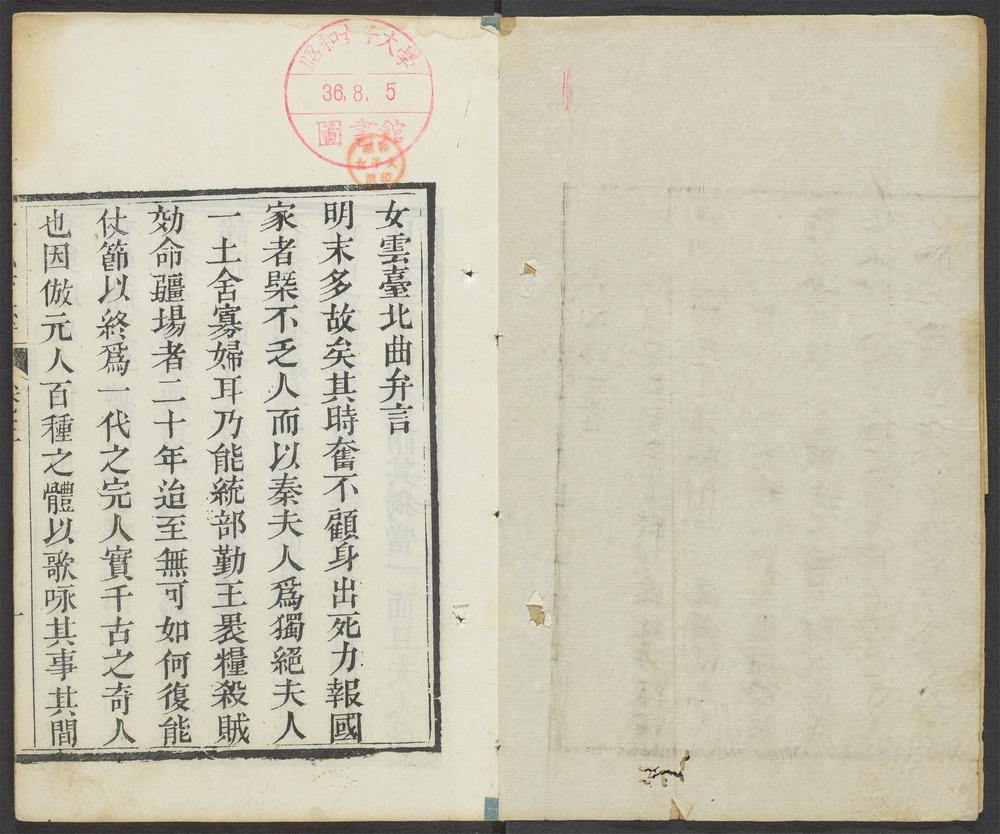 昭和女子大學
36.8.5
圖書館
女雲臺北曲弁言
明末多故矣其時奮不顧身出死力報國
家者槩不乏人而以秦夫人爲獨絕夫人
一土舍寡婦耳乃能統部勤王褁糧殺賊
効命疆場者二十年迨至無可如何復能
仗節以終爲一代之完人實千古之奇人
也因倣元人百種之體以歌咏其事其間
一